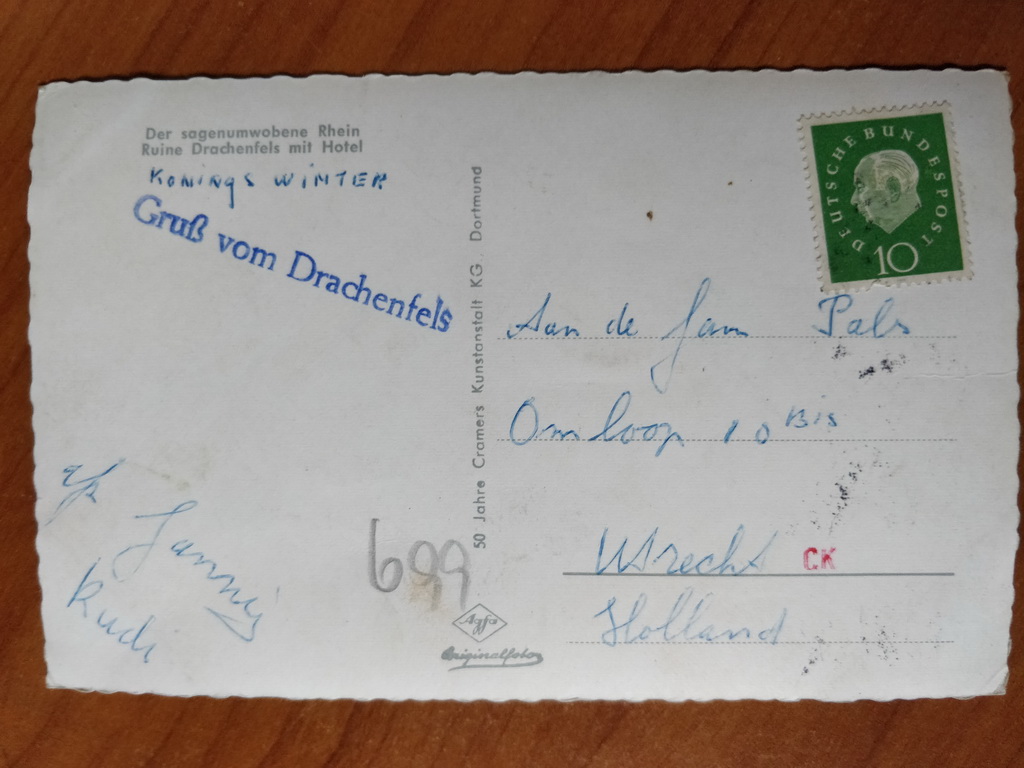 Der sagenumwobene Rhein
Ruine Drachenfels mit Hotel
KONINGS WINTER
Gruß vom Drachenfels
50 Jahre Cramers Kunstanstalt KG., Dortmund
DEUTSCHE BUNDESPOST
10
Aan de fam Pals
Omloop 10 Bis
Utrecht CK
Holland
afz
Rudi
699
Agfa
Originalfoto